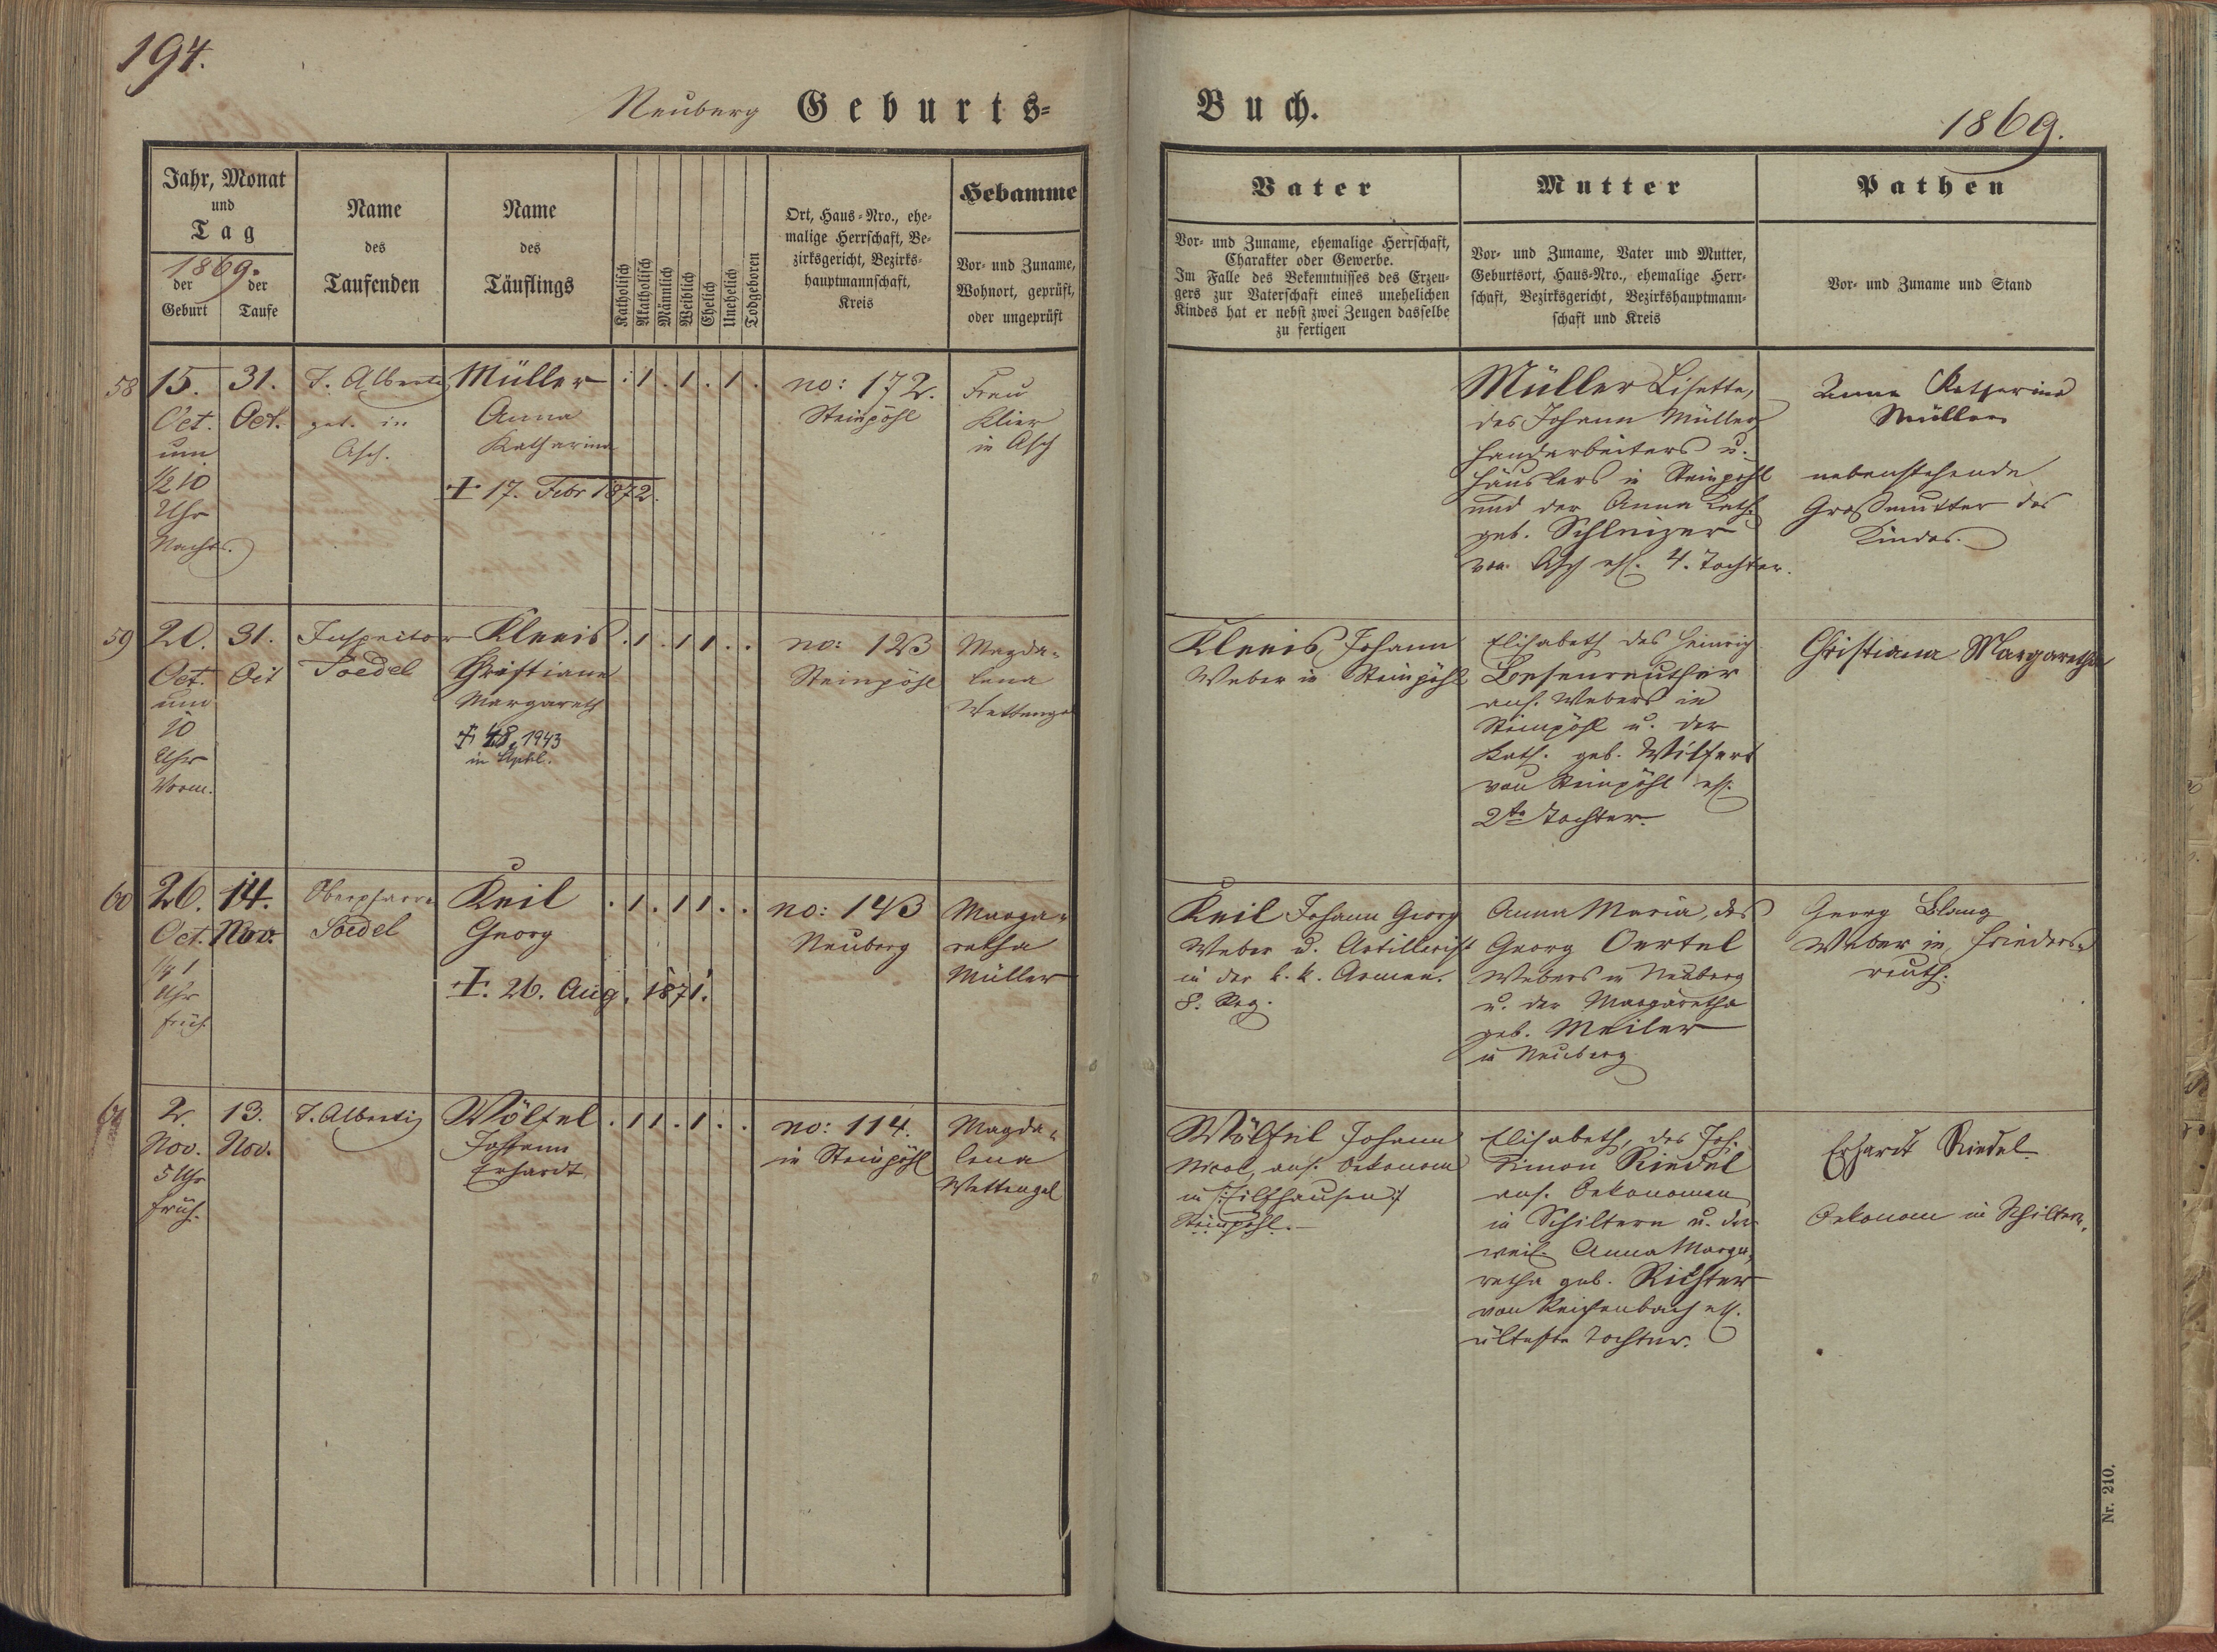 194.
Neuberg Geburts-
Buch.
1869.
Jahr, Monat
und
Tag
1869.
der Geburt
der Taufe
Name
des
Taufenden
Name
des
Täuflings
Katholisch
Akatholisch
Männlich
Weiblich
Ehelich
Unehelich
Todgeboren
Ort, Haus-Nro., ehe-
malige Herrschaft, Be-
zirksgericht, Bezirks-
hauptmannschaft,
Kreis
Hebamme
Vor- und Zuname,
Wohnort, geprüft,
oder ungeprüft
Vater
Vor- und Zuname, ehemalige Herrschaft,
Charakter oder Gewerbe.
Im Falle des Bekenntnisses des Erzeu-
gers zur Vaterschaft eines unehelichen
Kindes hat er nebst zwei Zeugen dasselbe
zu fertigen
Mutter
Vor- und Zuname, Vater und Mutter,
Geburtsort, Haus-Nro., ehemalige Herr-
schaft, Bezirksgericht, Bezirkshauptmann-
schaft und Kreis
Pathen
Vor- und Zuname und Stand
58
15.
Oct.
um
1/2 10
Uhr
Nachts.
31.
Oct.
T. Alberti
get. in
Asch.
Müller
Anna
Katharina
+ 17. Febr 1872.
. 1 . 1 . 1 .
no: 172.
Steinpöhl
Frau
Klier
in Asch
Müller Lisette,
des Johann Müller
Handarbeiters u.
Häuslers in Steinpöhl
und der Anna Kath.
geb. Schleizer
von Asch ehl. 4. Tochter.
Anna Katharina
Müller
nebenstehende
Großmutter des
Kindes.
59
20.
Oct.
um
10
Uhr
Vorm.
31.
Oct
Inspector
Soedel
Kleeis
Christiane
Margareth
1943
in
. 1 . 1 1 . .
no: 123
Steinpöhl
Magda-
lena
Wettengel
Kleeis, Johann
Weber in Steinpöhl
Elisabeth des Heinrich
Besenreuther
ans. Webers in
Steinpöhl u. der
Kath. geb. Wilfert
von Steinpöhl ehl.
2te Tochter.
Christiana Margaretha
60
26.
Oct.
1/2 1
Uhr
früh
14.
Nov.
Oberpfarrer
Soedel
Keil
Georg
+. 26. Aug. 1871.
. 1 . 1 1 . .
no: 143
Neuberg
Marga-
retha
Müller
Keil Johann Georg
Weber u. Artillerist
in der k. k. Armee.
8. Reg.
Anna Maria, des
Georg Oertel
Webers in Neuberg
u. der Margaretha
geb. Meiler
in Neuberg
Georg
Weber in Frieders-
reuth.
61
2.
Nov.
5 Uhr
früh.
13.
Nov.
T. Alberti
Wölfel
Johann
Erhardt
. 1 1 . 1 . .
no: 114.
in Steinpöhl
Magda-
lena
Wettengel
Wölfel Johann
Nicol, ans. Oekonom
in
Steinpöhl.
Elisabeth, des Joh.
Simon Riedel
ans. Oekonomen
in Schiltern u. der
weil. Anna Marga-
retha geb. Richter
von Reichenbach ehl.
älteste Tochter.
Erhardt Riedel
Oekonom in Schiltern.
Nr. 210.